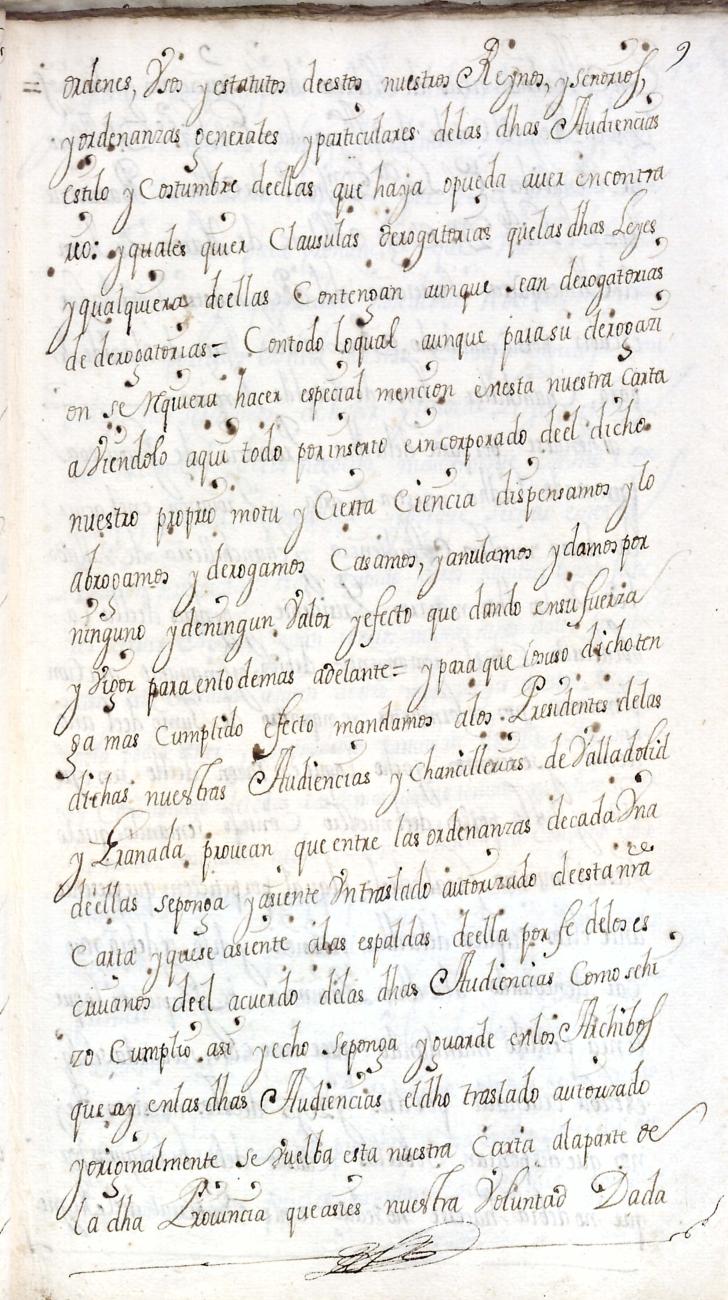 9
= ordenes, Vsos y estatutos deestos nuestros Reynos, y señorios,
y ordenanzas generales y particulares delas dhas Audiencias
estilo y Costumbre deellas que haya opueda auer encontra
rio: y quales quier Clausulas derogatorias quelas dhas Leyes
y qualquiera deellas Contengan aunque sean derogatorias
de derogatorias = Contodo loqual aunque para su derogazi
on se rrequiera hacer especial mencion enesta nuestra Carta
aViendolo aqui todo por inserto e incorporado deel dicho
nuestro proprio motu y Cierta Ciencia dispensamos y lo
abrogamos y derogamos Casamos, y anulamos y damos por
ninguno y deningun Valor y efecto que dando ensu fuerza
y Vigor para enlo demas adelante = y para que losuso dicho ten
ga mas Cumplido efecto mandamos alos Presidentes delas
dichas nuestras Audiencias y Chancillerias de Valladolid
y Granada prouean que entre las ordenanzas decada Vna
deellas seponga y asiente Vn traslado autorizado deesta nrã
Carta y quese asiente alas espaldas deella por fe delos es
criuanos deel acuerdo delas dhas Audiencias Como sehi
zo Cumplio asi y echo seponga y guarde enlos Archibos
que ay enlas dhas Audiencias el dho traslado autorizado
y originalmente se Vuelba esta nuestra Carta alaparte de
la dha Prouincia que asies nuestra Voluntad Dada